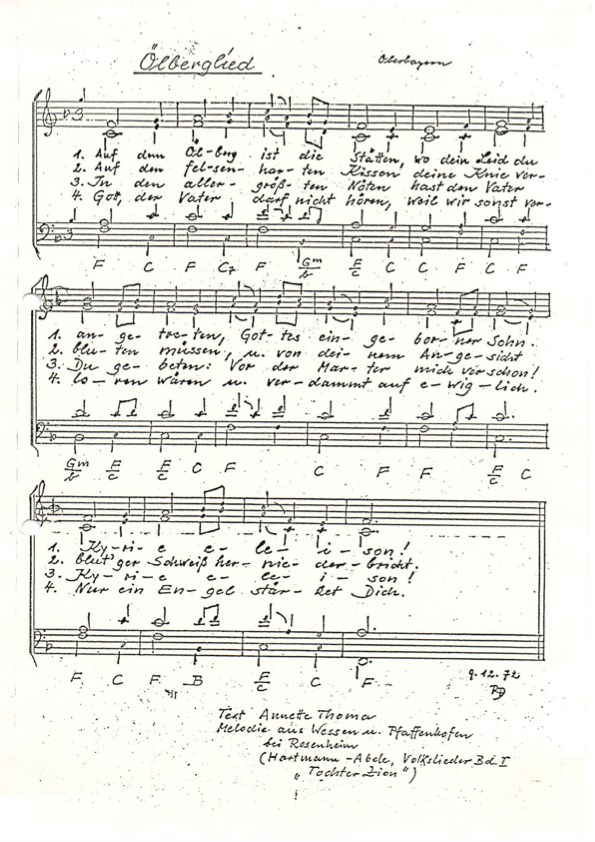 Ölberglied
Oberbayern
1. Auf dem Öl-berg ist die Stätten, wo dein Leid du
2. Auf den fel-sen-har-ten Kissen deine Knie ver-
3. In den aller-größ-ten Nöten hast den Vater
4. Gott, der Vater darf nicht hören, weil wir sonst ver-
F C F C7 F Gm/b F/C C C F C F
1. an-ge-tre-ten, Got-tes ein-ge-bor-ner Sohn.
2. blu-ten müssen, u. von dei-nem An-ge-sicht
3. Du ge-beten: Vor der Mar-ter mich verschon!
4. lo-ren wären u. ver-dammt auf e-wig-lich.
Gm/b F/C F/C C F C F F F/C C
1. Ky-ri-e e-le-i-son!
2. blut'ger Schweiß her-nie-der-bricht.
3. Ky-ri-e e-le-i-son!
4. Nur ein En-gel stär-ket Dich.
F C F B F/C C F
9.12.72
Text Annette Thoma
Melodie aus Wessen u. Pfaffenhofen
bei Rosenheim
(Hartmann-Abele, Volkslieder Bd. I
"Tochter Zion")